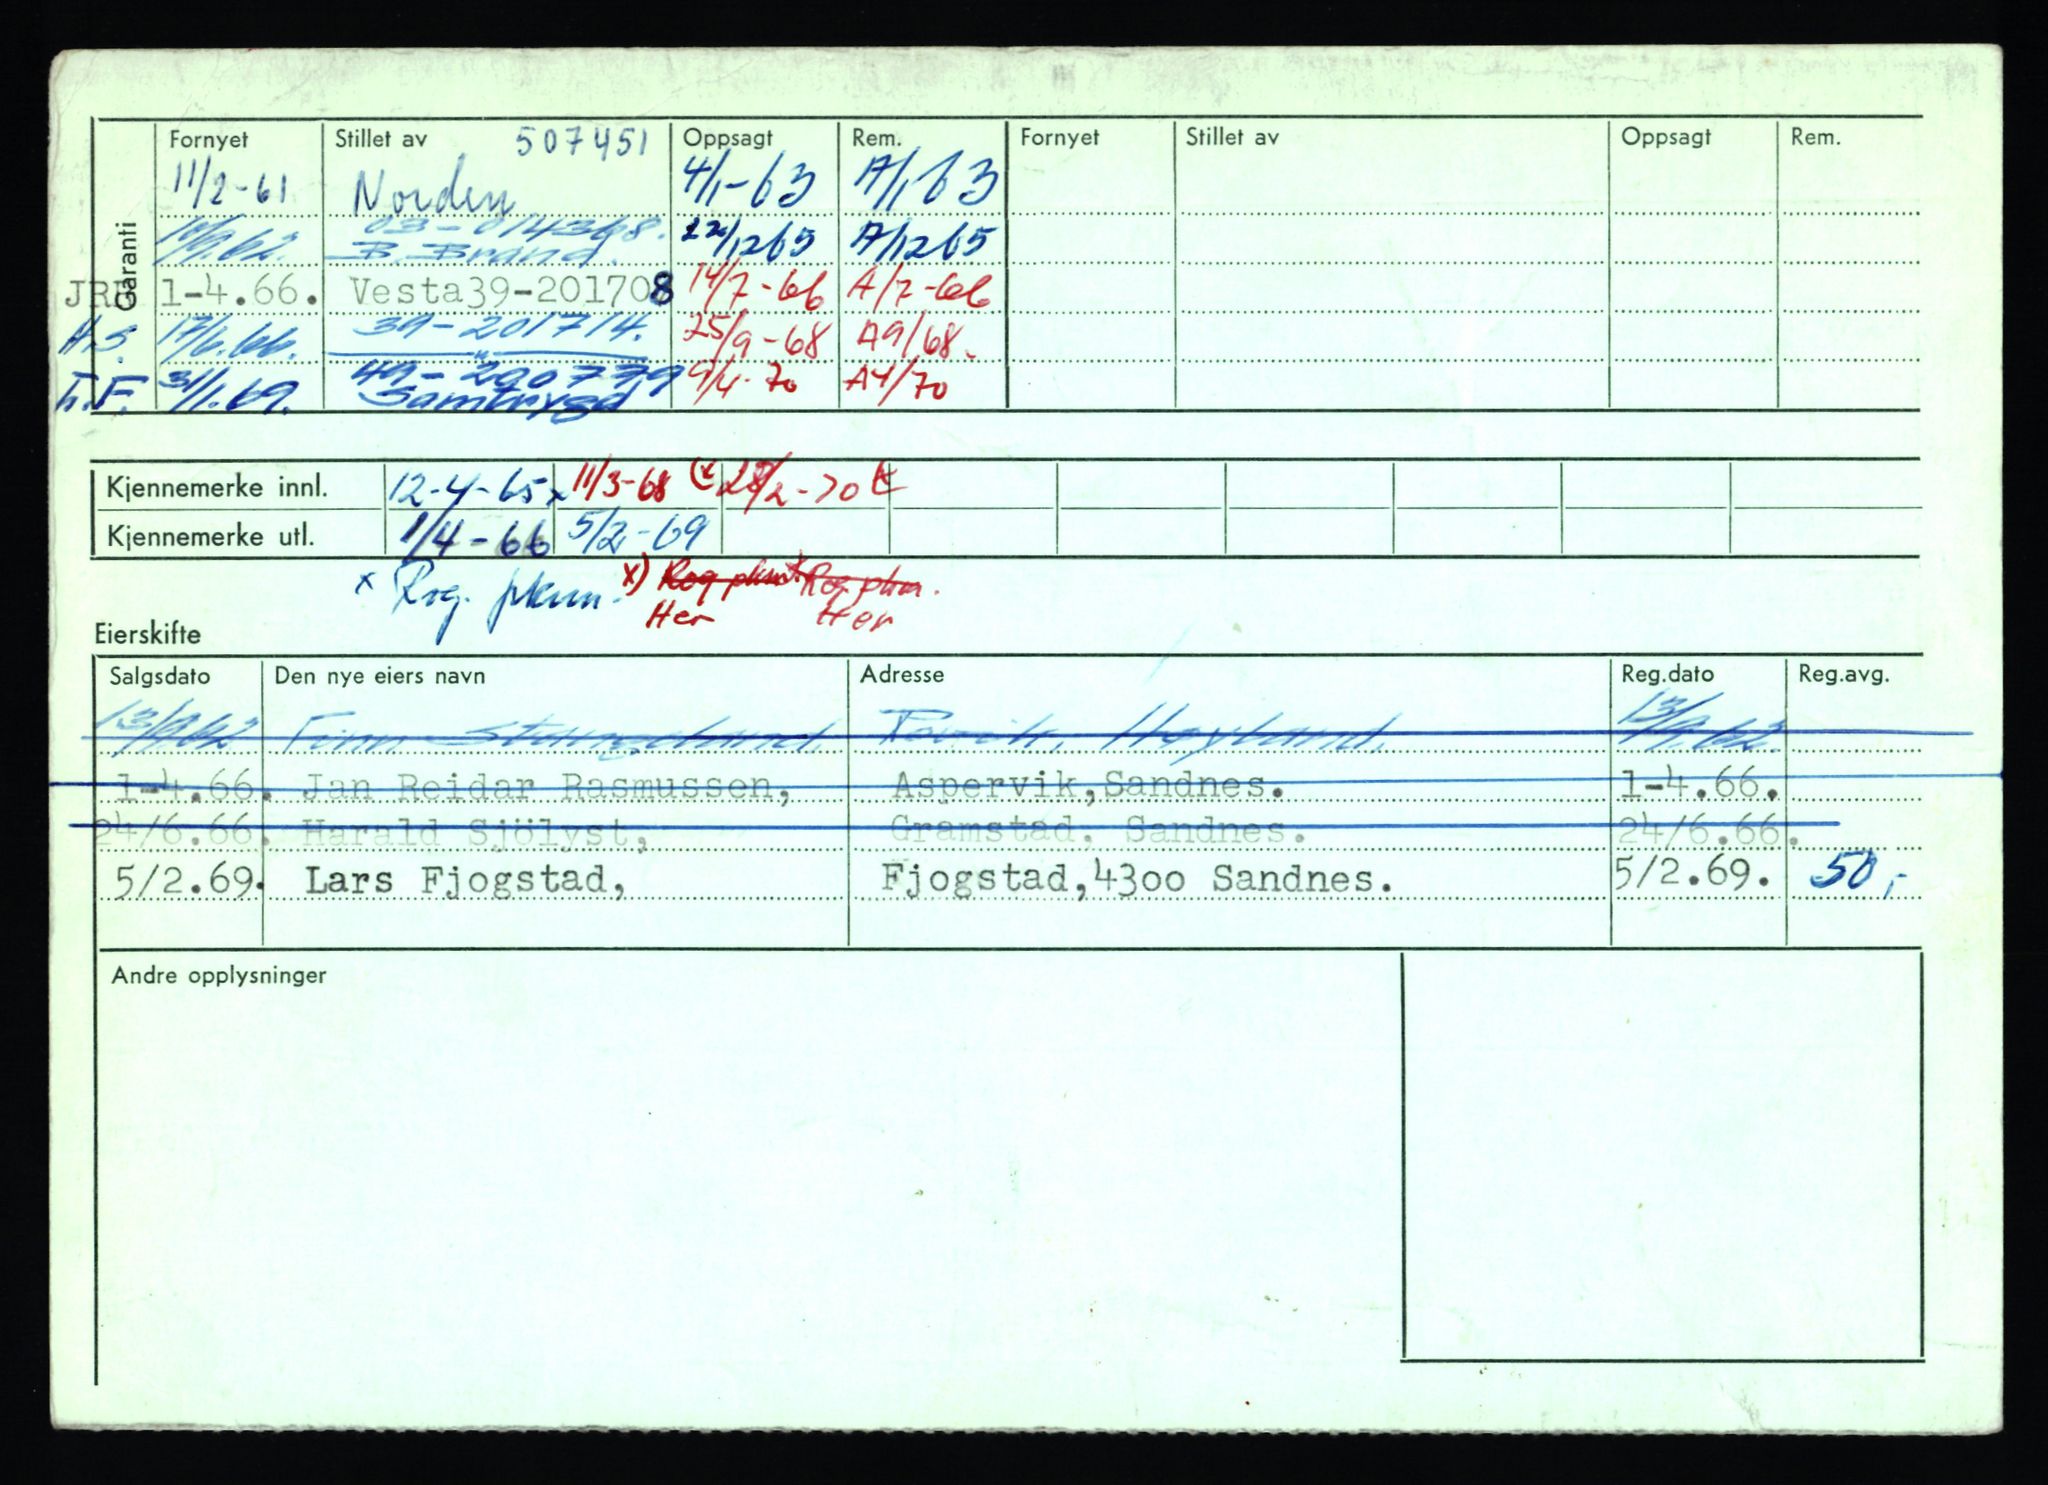 Garanti
Fornyet Stillet av 507451 Oppsagt Rem. Fornyet Stillet av Oppsagt Rem.
11/2-61 Norden 4/1-63 A/1 63
03-014368.
B. Brand. 22/12 65 A/12 65
JRR 1-4.66. Vesta39-201708 14/7-66 A/7-66
H.S. 17/6.66. 39-201714. 25/9-68 A9/68.
"
49-290779
31/1.69. Samtrygd 9/4-70 A4/70
Kjennemerke innl. 12-4-65 x 11/3-68 (x 28/2-70
Kjennemerke utl. 1/4-66 5/2-69
x Rog. pkm. x) Rog pkm Rog. pkm.
Her Her
Eierskifte
Salgsdato Den nye eiers navn Adresse Reg.dato Reg.avg.
13/9.62 Finn Høyland. 13/9.62.
1-4.66. Jan Reidar Rasmussen, Aspervik,Sandnes. 1-4.66.
24/6.66. Harald Sjölyst, Gramstad. Sandnes. 24/6.66.
5/2.69. Lars Fjogstad, Fjogstad,4300 Sandnes. 5/2.69. 50,-
Andre opplysninger